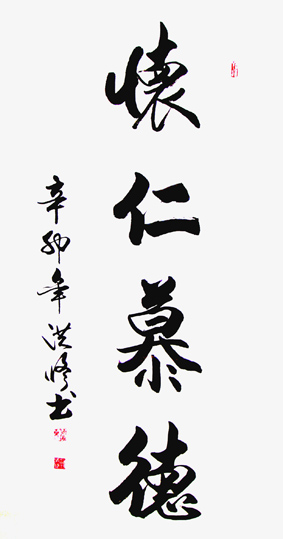 懷仁慕德
辛卯年洪修书